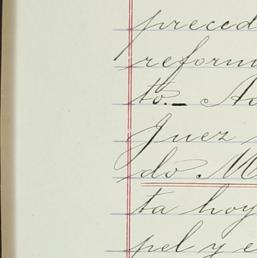 preced
reform
to._ Ac
Juez
do M
ta hoy
pel y e